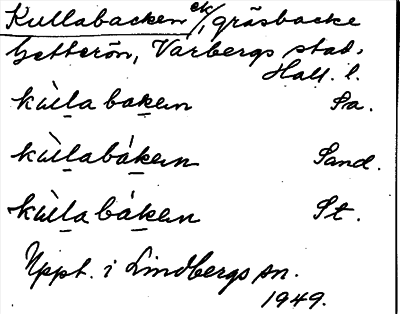 Kullabacken ck/, gräsbacke
Getterön, Varbergs stad,
Hall. l.
kùlla baken Sa.
kùllabáken Sand.
kùlla báken St.
Uppt. i Lindbergs sn.
1949.